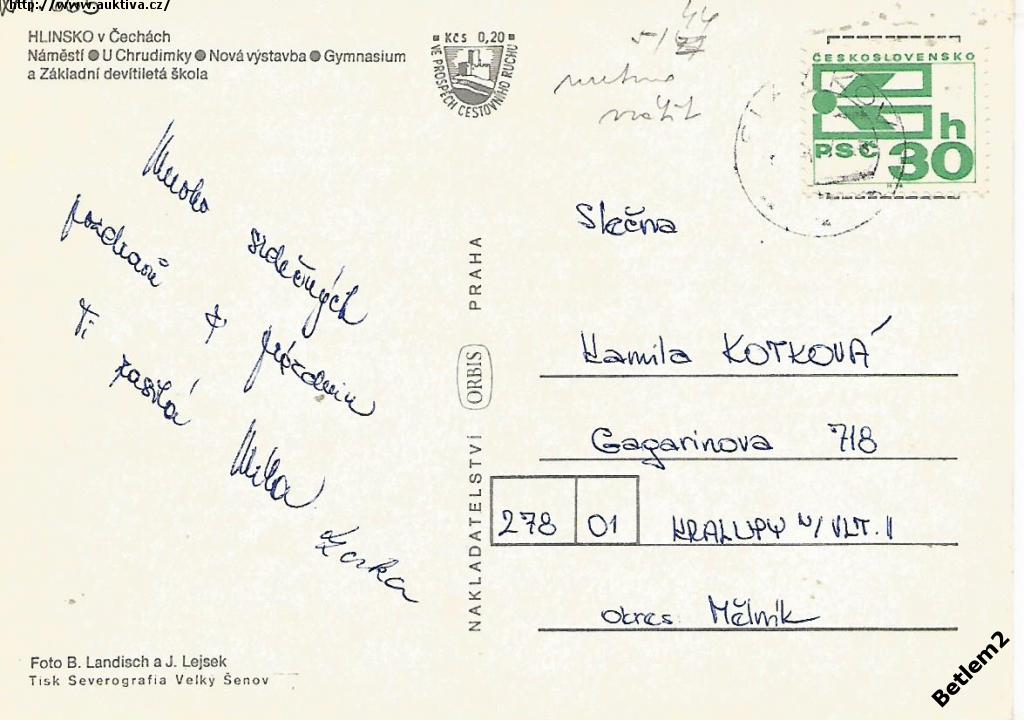 http://www.auktiva.cz/
HLINSKO v Čechách
Náměstí ● U Chrudimky ● Nová výstavba ● Gymnasium
a Základní devítiletá škola
Kčs 0,20
VE PROSPĚCH CESTOVNÍHO RUCHU
44
51
ČESKOSLOVENSKO
PSČ
h
30
Mnoho
srdečných
pozdravů
z prázdnin
Ti
zasílá
Míla
Slečna
Kamila KOTKOVÁ
Gagarinova 718
278 01 KRALUPY n/VLT. II
okres Mělník
NAKLADATELSTVÍ ORBIS PRAHA
Foto B. Landisch a J. Lejsek
Tisk Severografia Velký Šenov
Betlem2